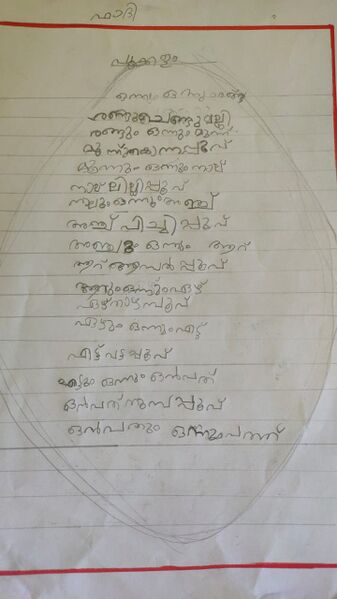 ഫാദി
പൂക്കളം
ഒന്നും ഒന്നും രണ്ട്
രണ്ടുചെണ്ടുമല്ലി
രണ്ടും ഒന്നും മൂന്ന്
മൂന്ന്കൊന്നപ്പൂവ്
മൂന്നും ഒന്നും നാല്
നാല് ലില്ലിപ്പൂവ്
നാലുംഒന്നുംഅഞ്ച്
അഞ്ച് പിച്ചിപ്പൂവ്
അഞ്ചും ഒന്നും ആറ്
ആറ് ആമ്പൽപ്പൂവ്
ആറുംഒന്നുംഏഴ്
ഏഴ്താഴമ്പൂവ്
ഏഴും ഒന്നുംഎട്ട്
എട്ട് വട്ടപ്പൂവ്
എട്ടും ഒന്നും ഒൻപത്
ഒൻപത്തുമ്പപ്പൂവ്
ഒൻപതും ഒന്നുംപത്ത്